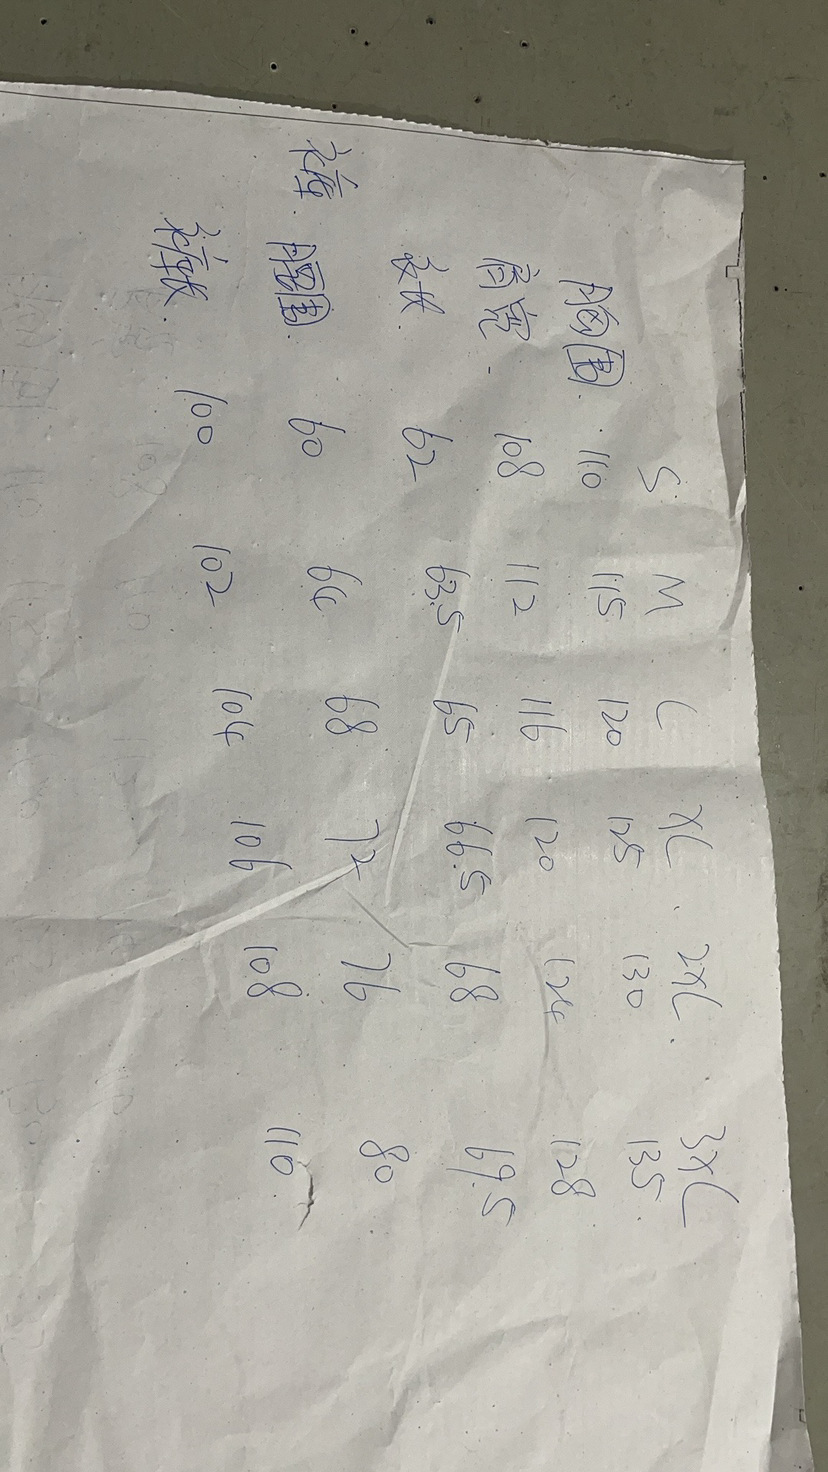 S M L XL 2XL 3XL
胸围 110 115 120 125 130 135
肩宽 108 112 116 120 124 128
衣长 62 63.5 65 66.5 68 69.5
裤 腰围 60 64 68 72 76 80
裤长 100 102 104 106 108 110